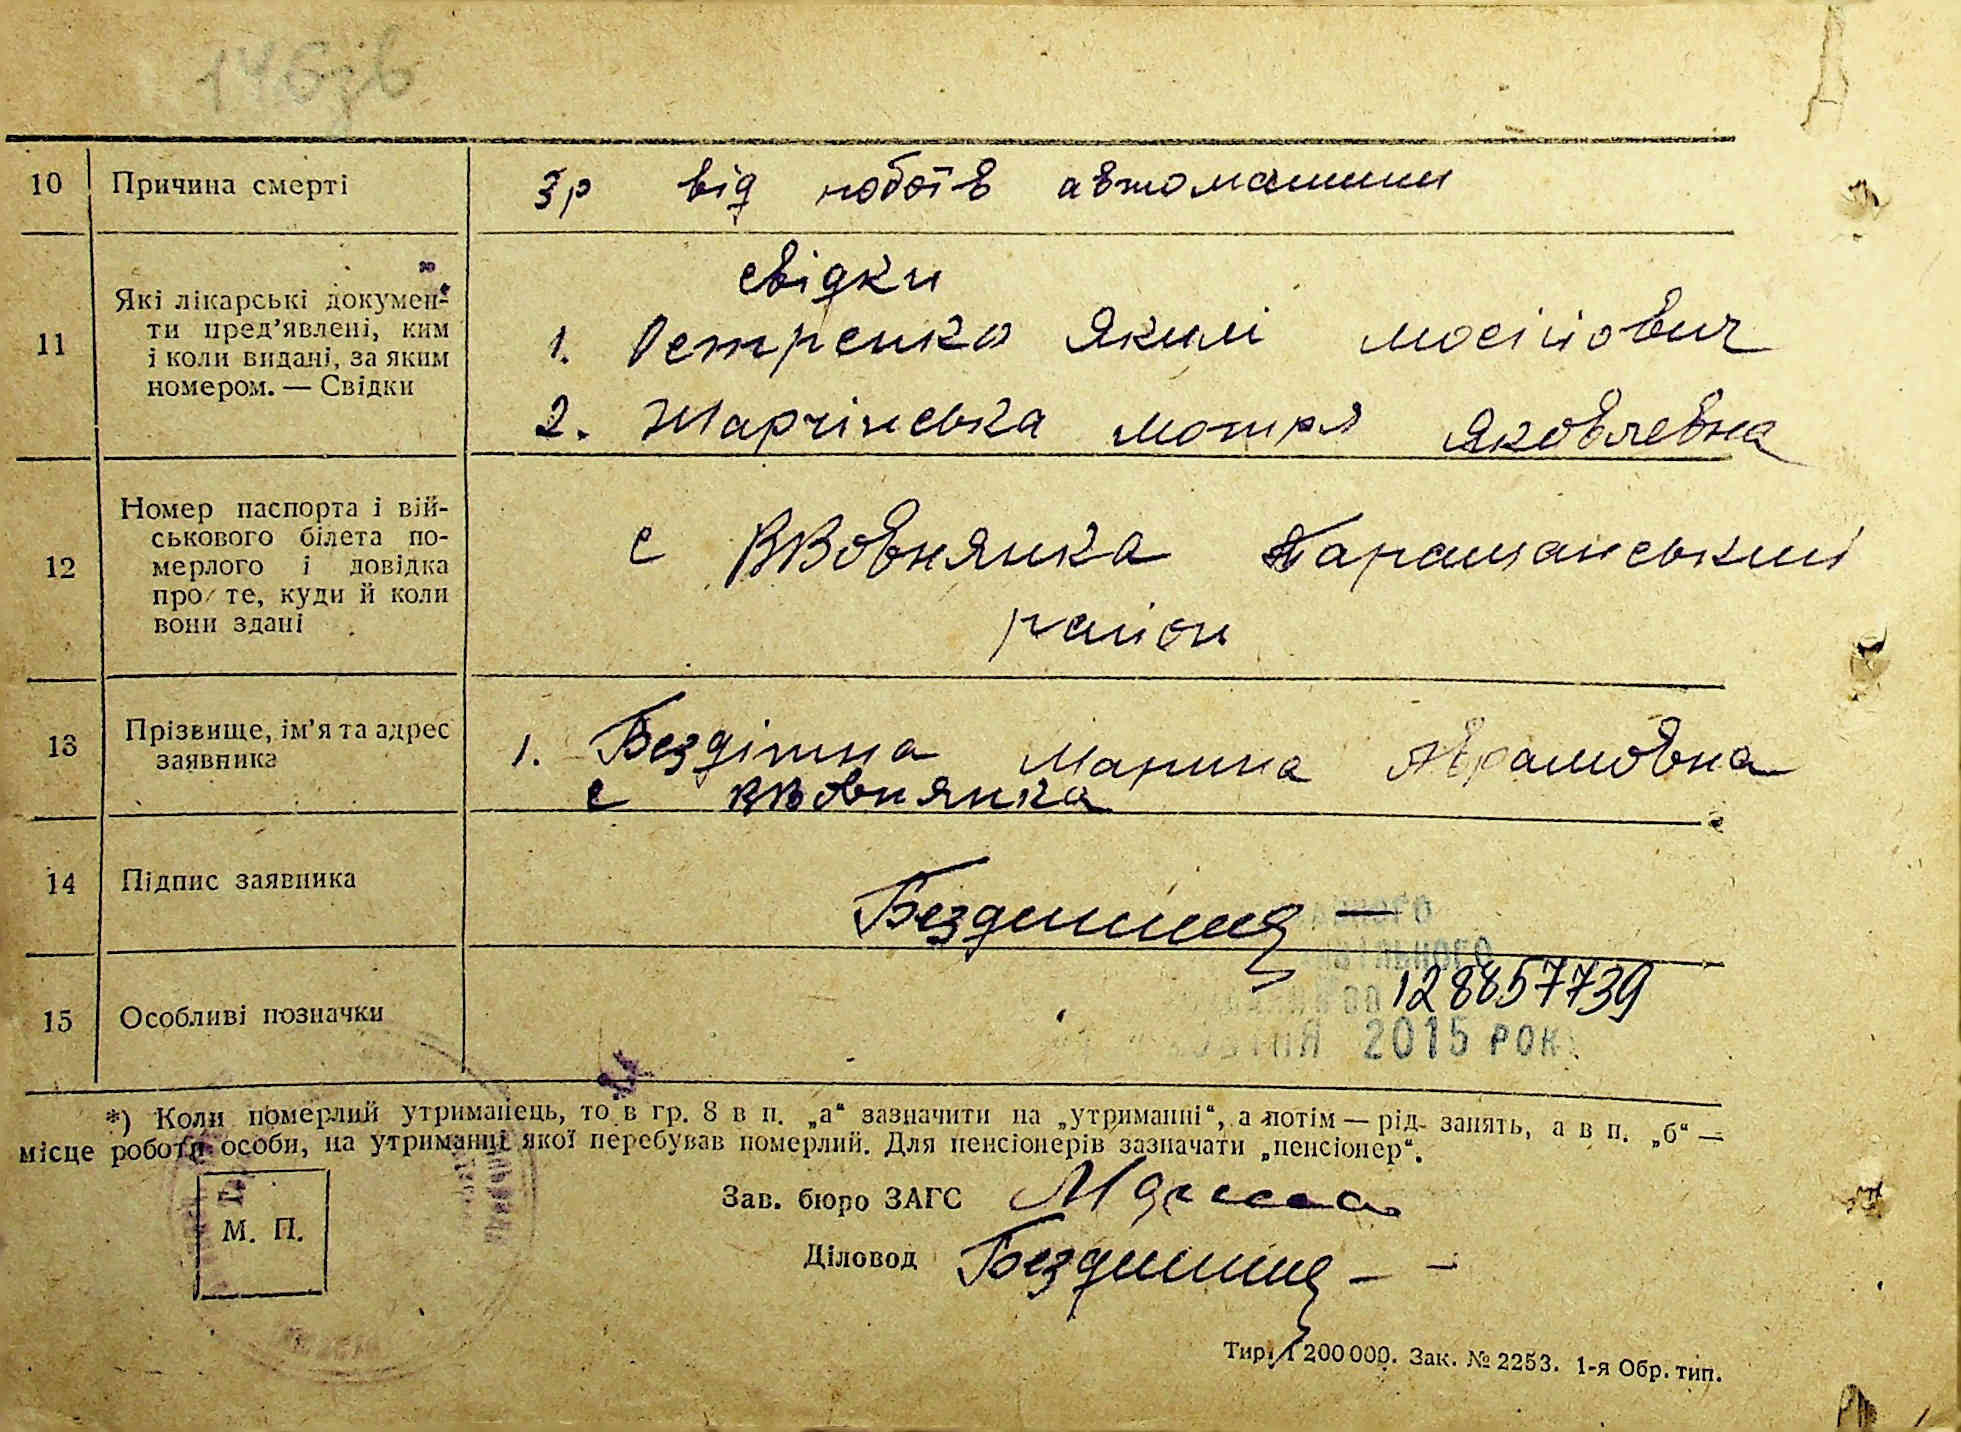 146зв
10 Причина смерті
Зр від побоїв автомашини
11 Які лікарські докумен-
ти пред’явлені, ким
і коли видані, за яким
номером. — Свідки
свідки
1. Петренко Яким Мосійович
2. Жарчінська Мотря Яковлевна
12 Номер паспорта і вій-
ськового білета по-
мерлого і довідка
про те, куди й коли
вони здані
с ВВовнянка Таращанський
район
13 Прізвище, ім’я та адрес
заявника
1. Бездітна Марина Аврамовна
с ввовнянка
14 Підпис заявника
15 Особливі позначки
128857739
2015 РОК
*) Коли померлий утриманець, то в гр. 8 в п. „а“ зазначити на „утриманні“, а потім — рід занять, а в п. „б“ —
місце роботи особи, на утриманні якої перебував померлий. Для пенсіонерів зазначати „пенсіонер“.
М. П.
Зав. бюро ЗАГС
Діловод
Тир. 1 200 000. Зак. № 2253. 1-я Обр. тип.